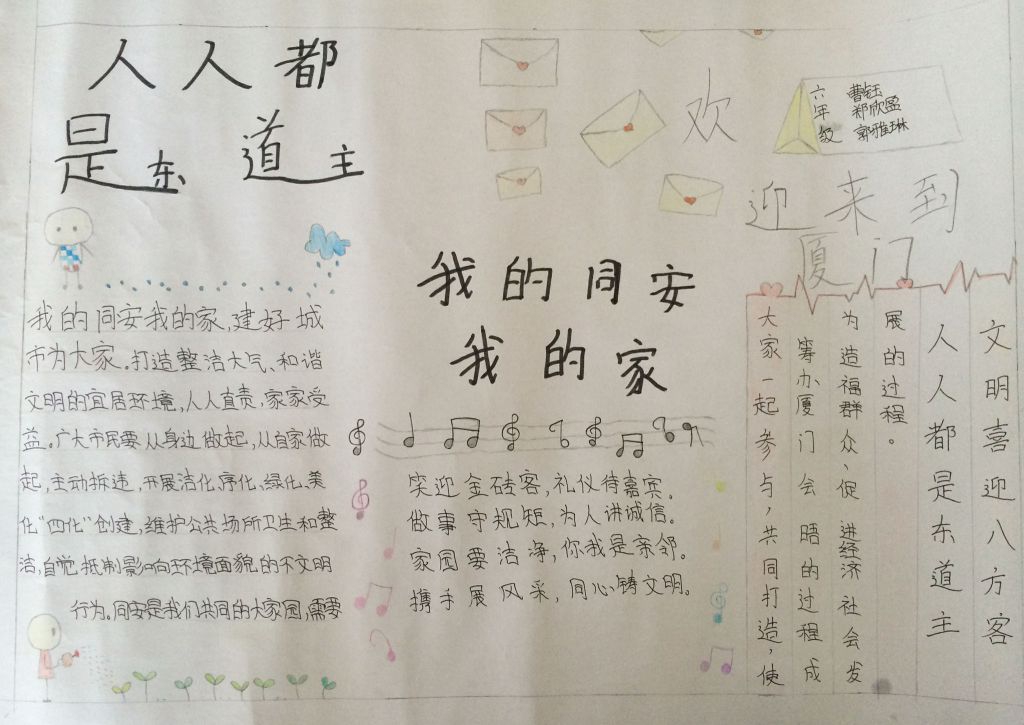 人人都
是东道主
我的同安我的家,建好城
市为大家.打造整洁大气、和谐
文明的宜居环境,人人直责,家家受
益.广大市民要从身边做起,从自家做
起,主动拆违,开展洁化、序化、绿化、美
化“四化”创建,维护公共场所卫生和整
洁,自觉抵制影响环境面貌的不文明
行为.同安是我们共同的大家园,需要
我的同安
我的家
笑迎金砖客,礼仪待嘉宾。
做事守规短,为人讲诚信。
家园要洁净,你我是亲邻。
携手展风采,同心铸文明。
六年级
曹钰
郑欣盈
郭雅琳
欢
迎来到
厦门
大家一起参与,共同打造,使
筹办厦门会晤的过程成
为造福群众、促进经济社会发
展的过程。
文明喜迎八方客
人人都是东道主